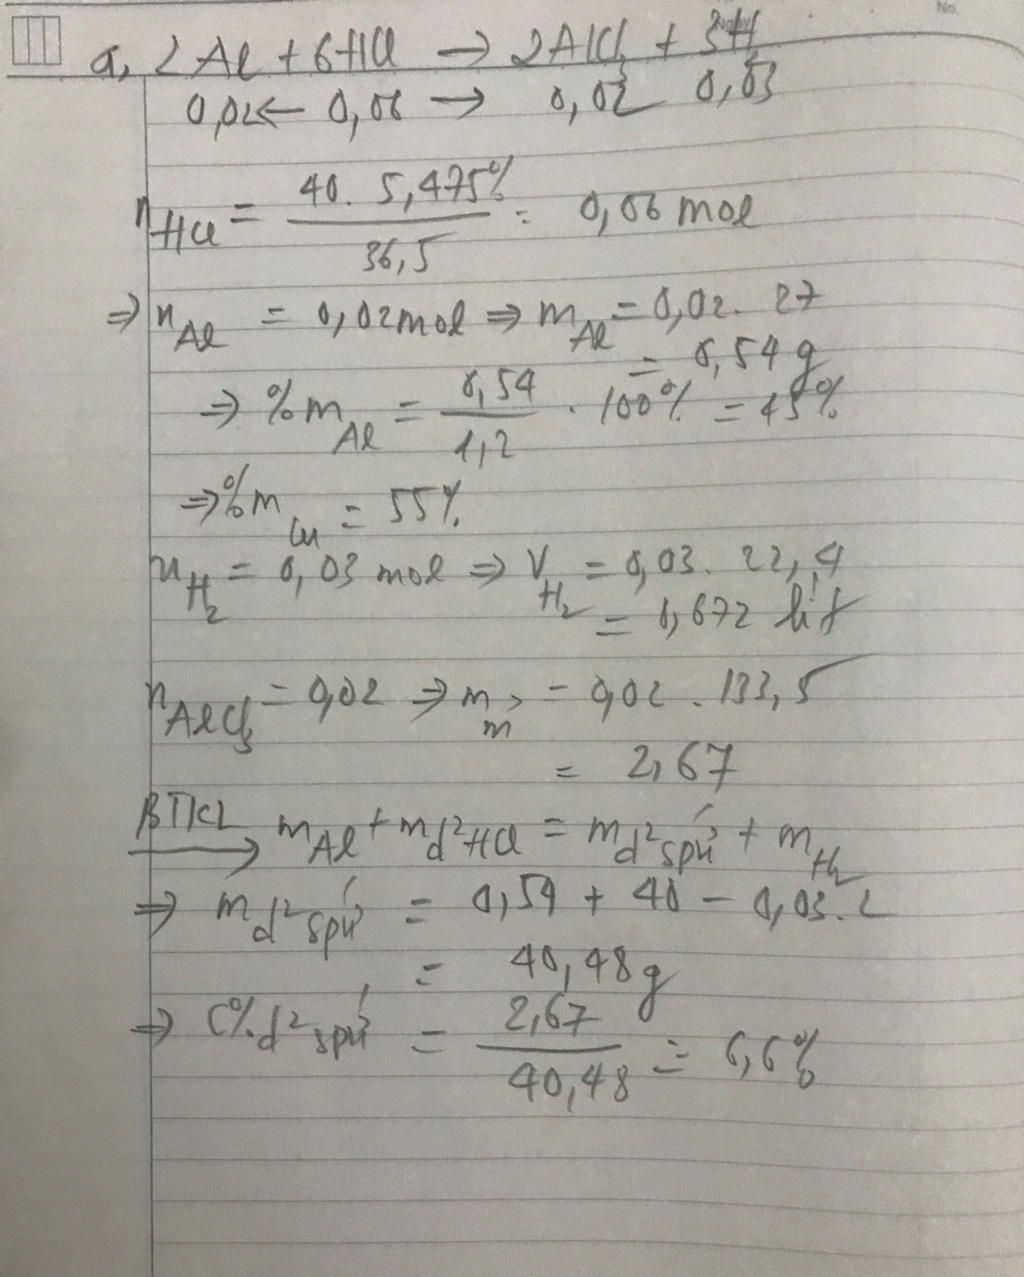 No.
a, 2Al + 6HCl → 2AlCl₃ + 3H₂
0,02 ← 0,06 → 0,02 0,03
n_HCl = (40 . 5,475%)/36,5 = 0,06 mol
⇒ n_Al = 0,02 mol ⇒ m_Al = 0,02 . 27
= 0,54 g
⇒ %m_Al = 0,54/1,2 . 100% = 45%
⇒ %m_Cu = 55%
n_H₂ = 0,03 mol ⇒ V_H₂ = 0,03 . 22,4
= 0,672 lít
n_AlCl₃ = 0,02 ⇒ m_m = 0,02 . 133,5
= 2,67
BTKL → m_Al + m_d²HCl = m_d²spứ + m_H₂
⇒ m_d²spứ = 0,54 + 40 - 0,03 . 2
= 40,48 g
⇒ C%d²spứ = 2,67/40,48 = 6,6%